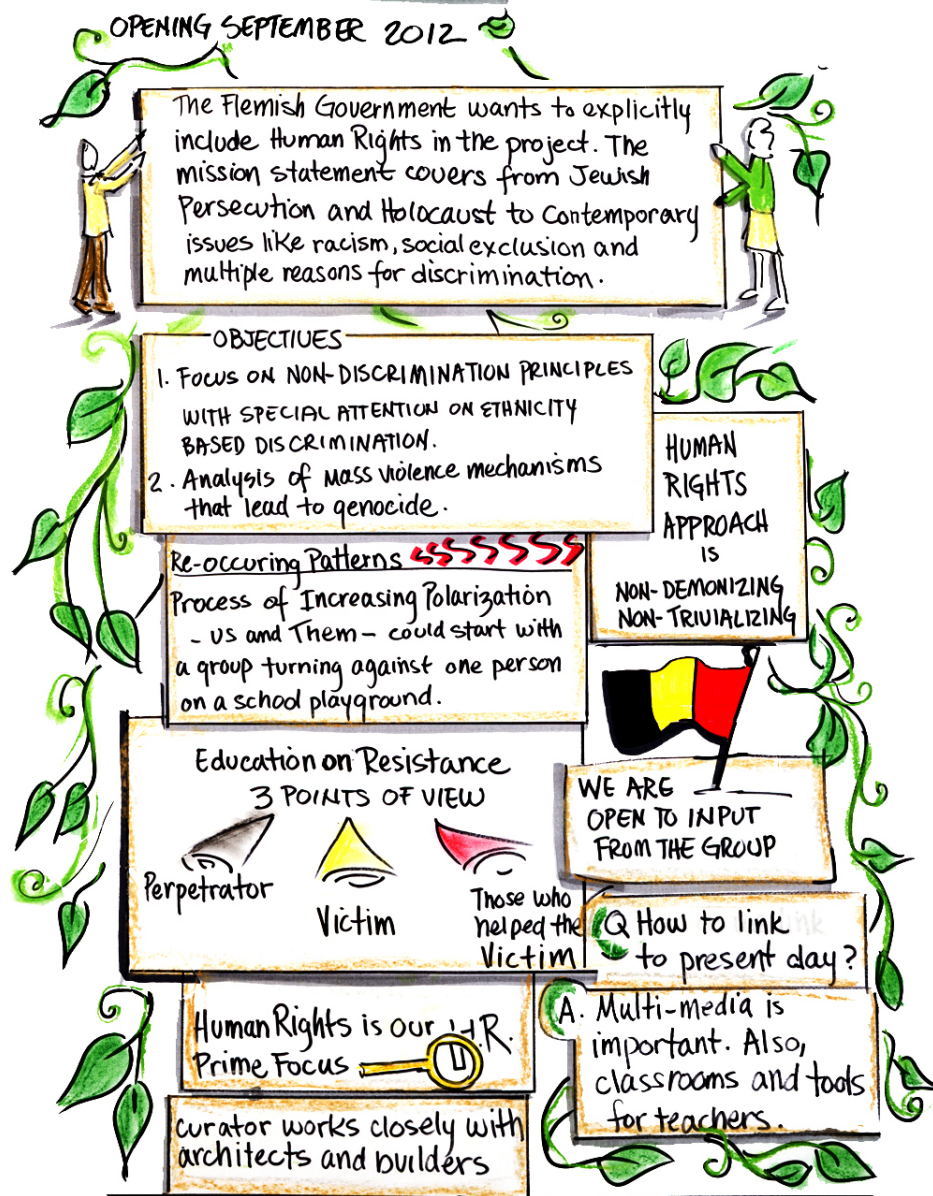 OPENING SEPTEMBER 2012
The Flemish Government wants to explicitly
include Human Rights in the project. The
mission statement covers from Jewish
Persecution and Holocaust to Contemporary
issues like racism, social exclusion and
multiple reasons for discrimination.
OBJECTIVES
1. FOCUS ON NON-DISCRIMINATION PRINCIPLES
WITH SPECIAL ATTENTION ON ETHNICITY
BASED DISCRIMINATION.
2. Analysis of mass violence mechanisms
that lead to genocide.
HUMAN
RIGHTS
APPROACH
IS
NON-DEMONIZING
NON-TRIVIALIZING
Re-occuring Patterns
Process of Increasing Polarization
- us and Them - could start with
a group turning against one person
on a school playground.
Education on Resistance
3 POINTS OF VIEW
Perpetrator
Victim
Those who
helped the
Victim
WE ARE
OPEN TO INPUT
FROM THE GROUP
Q How to link
to present day?
A. Multi-media is
important. Also,
classrooms and tools
for teachers.
Human Rights is our H.R.
Prime Focus
curator works closely with
architects and builders